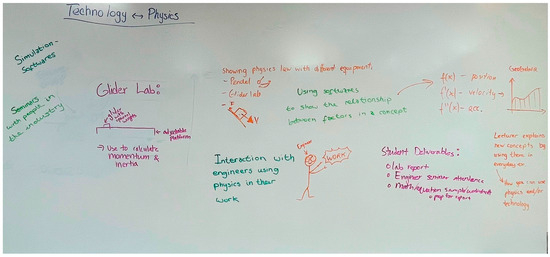 Technology ↔ Physics
Simulation -
Softwares
Seminars
with people in
the industry
Glider Lab:
glider
adjustable
platform
→ Use to calculate
momentum &
inertia
Showing physics law with different equipment.
- Pendul
- Glider lab
F
V
Using softwares
to show the relationship
between factors in a concept
f(x) - position
f'(x) - velocity
f''(x) - acc.
Interaction with
engineers using
physics in their
work
Engineer
WORK
Student Deliverables:
o lab report
o Engineer seminar attendance
o Math/question sample/worksheet
o prep for exam
Lecturer explains
new concepts by
using them in
everyday ex.
How you can use
physics and/or
technology